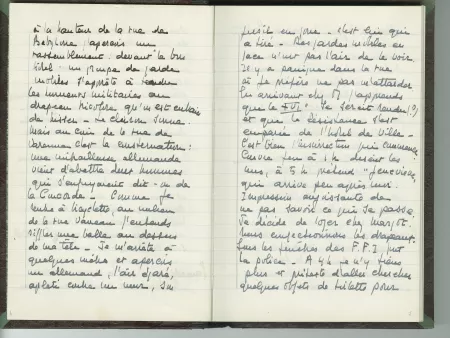 à la hauteur de la rue de
Babylone j'aperçois un
rassemblement devant le bon
hôtel. un groupe de garde
mobiles s'apprête à rendre
les honneurs militaires au
drapeau tricolore qu'on est en train
de hisser - Le clairon sonne.
Mais au coin de la rue de
Varenne c'est la consternation :
une mitrailleuse allemande
vient d'abattre deux hommes
qui s'enfuyaient dit-on de
la Concorde - Comme je
rentre à bicyclette, au milieu
de la rue Vaneau j'entends
siffler une balle au dessus
de ma tête - Je m'arrête à
quelques mètres et aperçois
un allemand, l'air égaré,
aplati contre un mur, son
fusil en joue - c'est lui qui
a tiré - Les gardes mobiles en
face n'ont pas l'air de le voir.
Il y a panique dans la rue
et je préfère ne pas m'attarder
En arrivant chez M j'apprends
que le se serait rendu (?)
et que la résistance s'est
emparée de l'Hôtel de Ville -
C'est bien l'insurrection qui commence
Couvre feu à 2h disent les
uns, à 5h prétend Geneviève
qui arrive peu après moi.
Impression angoissante de
ne pas savoir ce qui se passe.
Je décide de loger chez
Nous confectionnons les drapeaux.
Tous les F.F.I. sur
la police - A 4h je n'y tiens
plus et préfère d'aller chercher
quelques objets de toilette pour